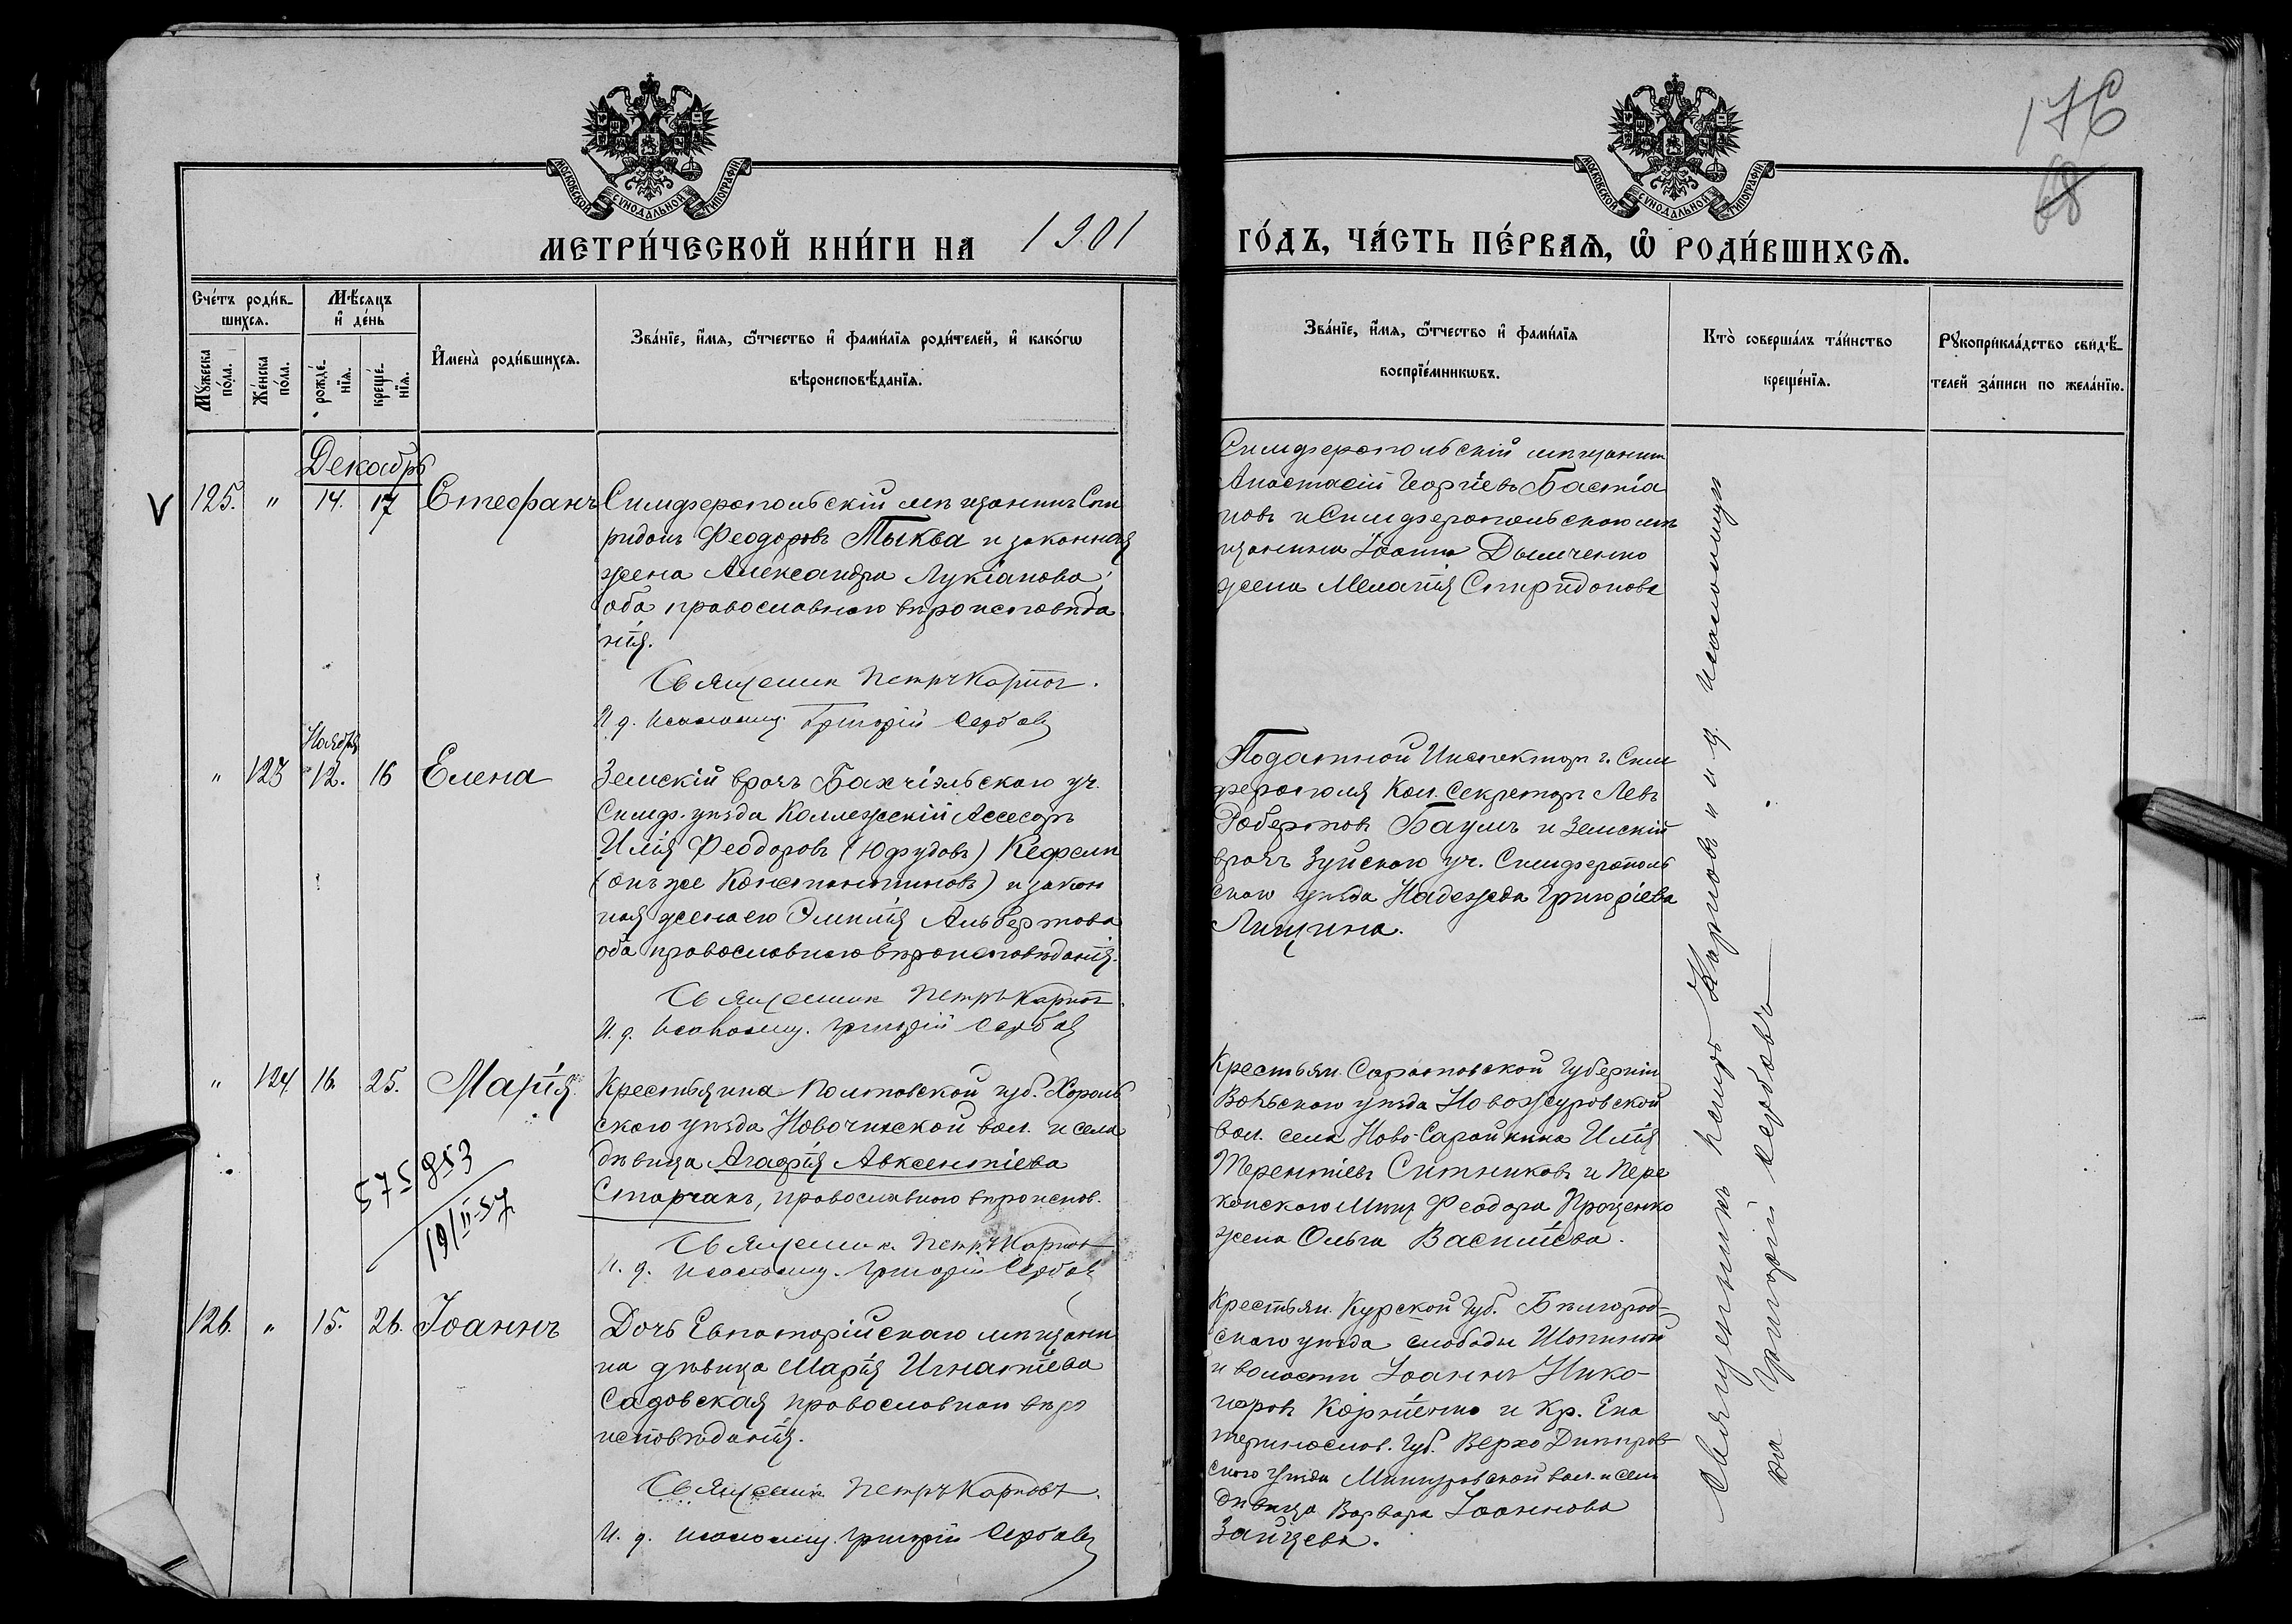 176
68
МОСКОВСКОЙ СѴНОДАЛЬНОЙ ТИПОГРАФІИ
МОСКОВСКОЙ СѴНОДАЛЬНОЙ ТИПОГРАФІИ
МЕТРИ́ЧЕСКОЙ КНИ́ГИ НА 1901
ГО́ДЪ, ЧА́СТЬ ПЕ́РВАѦ, Ѽ РОДИ́ВШИХСѦ.
Сче́тъ роди́в-
шихсѧ.
Мѣ́сѧцъ
и҆ де́нь
Мꙋ́жеска по́ла.
Же́нска по́ла.
рожде́-
нїѧ.
креще́-
нїѧ.
И҆мена̀ роди́вшихсѧ.
Зва́нїе, и҆́мѧ, ѻ҆́тчество и҆ фами́лїѧ роди́телей, и҆ како́гѡ
вѣроисповѣ́данїѧ.
Зва́нїе, и҆́мѧ, ѻ҆́тчество и҆ фами́лїѧ
воспрїе́мникѡвъ.
Кто̀ соверша́лъ та́инство
креще́нїѧ.
Рꙋкоприкла́дство свидѣ́-
телей за́писи по жела́нїю.
Декабрь
V 125. " 14. 17 Стефанъ
Симферопольскій мѣщанинъ Спи
ридонъ Феодоровъ Тыква и законная
жена Александра Лукіанова;
оба православнаго вѣроисповѣда
нія.
Священник Петръ Карпов.
И. д. псаломщ. Григорій Сербов
Симферопольскій мѣщанин
Анастасій Георгіевъ
новъ и Симферопольскаго мѣ
щанина Іоанна Дымченко
жена Меланія Спиридонова
Ноября
" 123 12. 16 Елена
Земскій врачъ Бахчіэльскаго уч.
Симф. уѣзда Коллежскій Ассесоръ
Илія Феодоровъ (Юфудовъ) Кефели
(онъ же Константиновъ) и закон
ная жена его Эмилія Альбертова
оба православнаго вѣроисповѣданія.
Священник Петръ Карпов
И. д. псаломщ. Григорій Сербов
Податной Инспекторъ г. Сим
ферополя Кол. Секретарь Левъ
Робертовъ Баумъ и Земскій
врачъ Зуйскаго уч. Симферополь
скаго уѣзда Надежда Григоріева
Лищина.
" 124 16. 25. Марія
Крестьянка Полтавской губ. Хороль
скаго уѣзда Новочинской вол. и села
дѣвица Агафія Авксентіева
Старчакъ, православнаго вѣроиспов.
Священник Петръ Карпов
И. д. псаломщ. Григорій Сербов
575/853
19/II-57
Крестьян. Саратовской Губерніи
уѣзда Новожуровской
вол. села Ново-Сарайкина Илія
Терентіевъ Ситниковъ и Пере
копскаго Мѣщ Феодора Проценко
жена Ольга Василіева.
126. " 15. 26. Іоаннъ
Дочь Евпаторійскаго мѣщани
на дѣвица Марія Игнатіева
Садовская православнаго вѣро
исповѣданія.
Священник Петръ Карповъ.
И. д. псаломщ. Григорій Сербов
Крестьян. Курской Губ. Бѣлгород-
скаго уѣзда слободы Шопиной
и волости Іоаннъ Нико-
норовъ Корніенко и Кр. Ека
теринослав. Губ. Верхо Днѣпров
скаго уѣзда Мишуровской вол. и села
дѣвица Варвара Іоаннова
Зайцева.
Священникъ Петръ Карповъ и и. д. псаломщи
ка Григорій Сербовъ